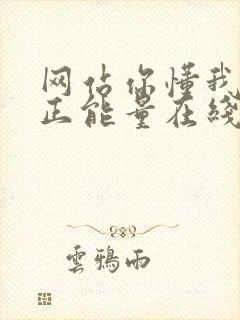 网估你懂我
正能量在綫
雲鴉雨